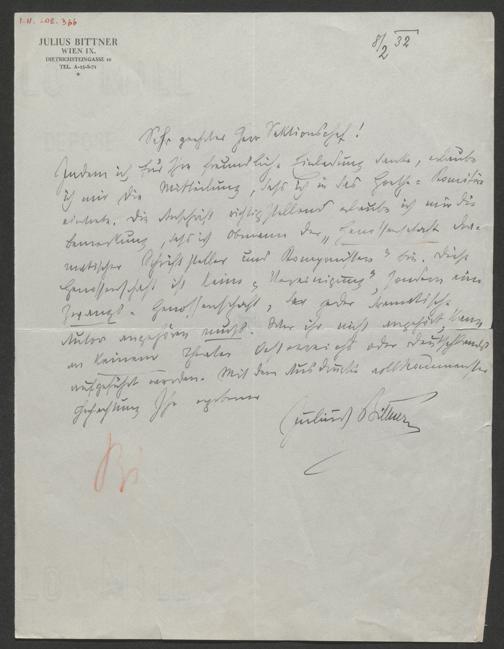 I.N. 208.366
JULIUS BITTNER
WIEN IX.
DIETRICHSTEINGASSE 10
TEL. A-15-8-71
8/2 32
Sehr geehrter Herr Sektionschef!
Indem ich für Ihre freundliche Einladung danke, erlaube
ich mir die Mitteilung, daß ich in das Goethe-Komitée
eintrete. Die Anschrift richtigstellend erlaube ich mir die
Bemerkung, daß ich Obmann der „Genossenschaft dra-
matischer Schriftsteller und Komponisten" bin. Diese
Genossenschaft ist keine „Vereinigung", sondern eine
Zwangs-Genossenschaft, der jeder dramatische
Autor angehören muß. Wer ihr nicht angehört, kann
an keinem Theater Österreichs oder Deutschlands
aufgeführt werden. Mit dem Ausdrucke vollkommenster
Hochachtung Ihr ergebener
Julius Bittner
Bi